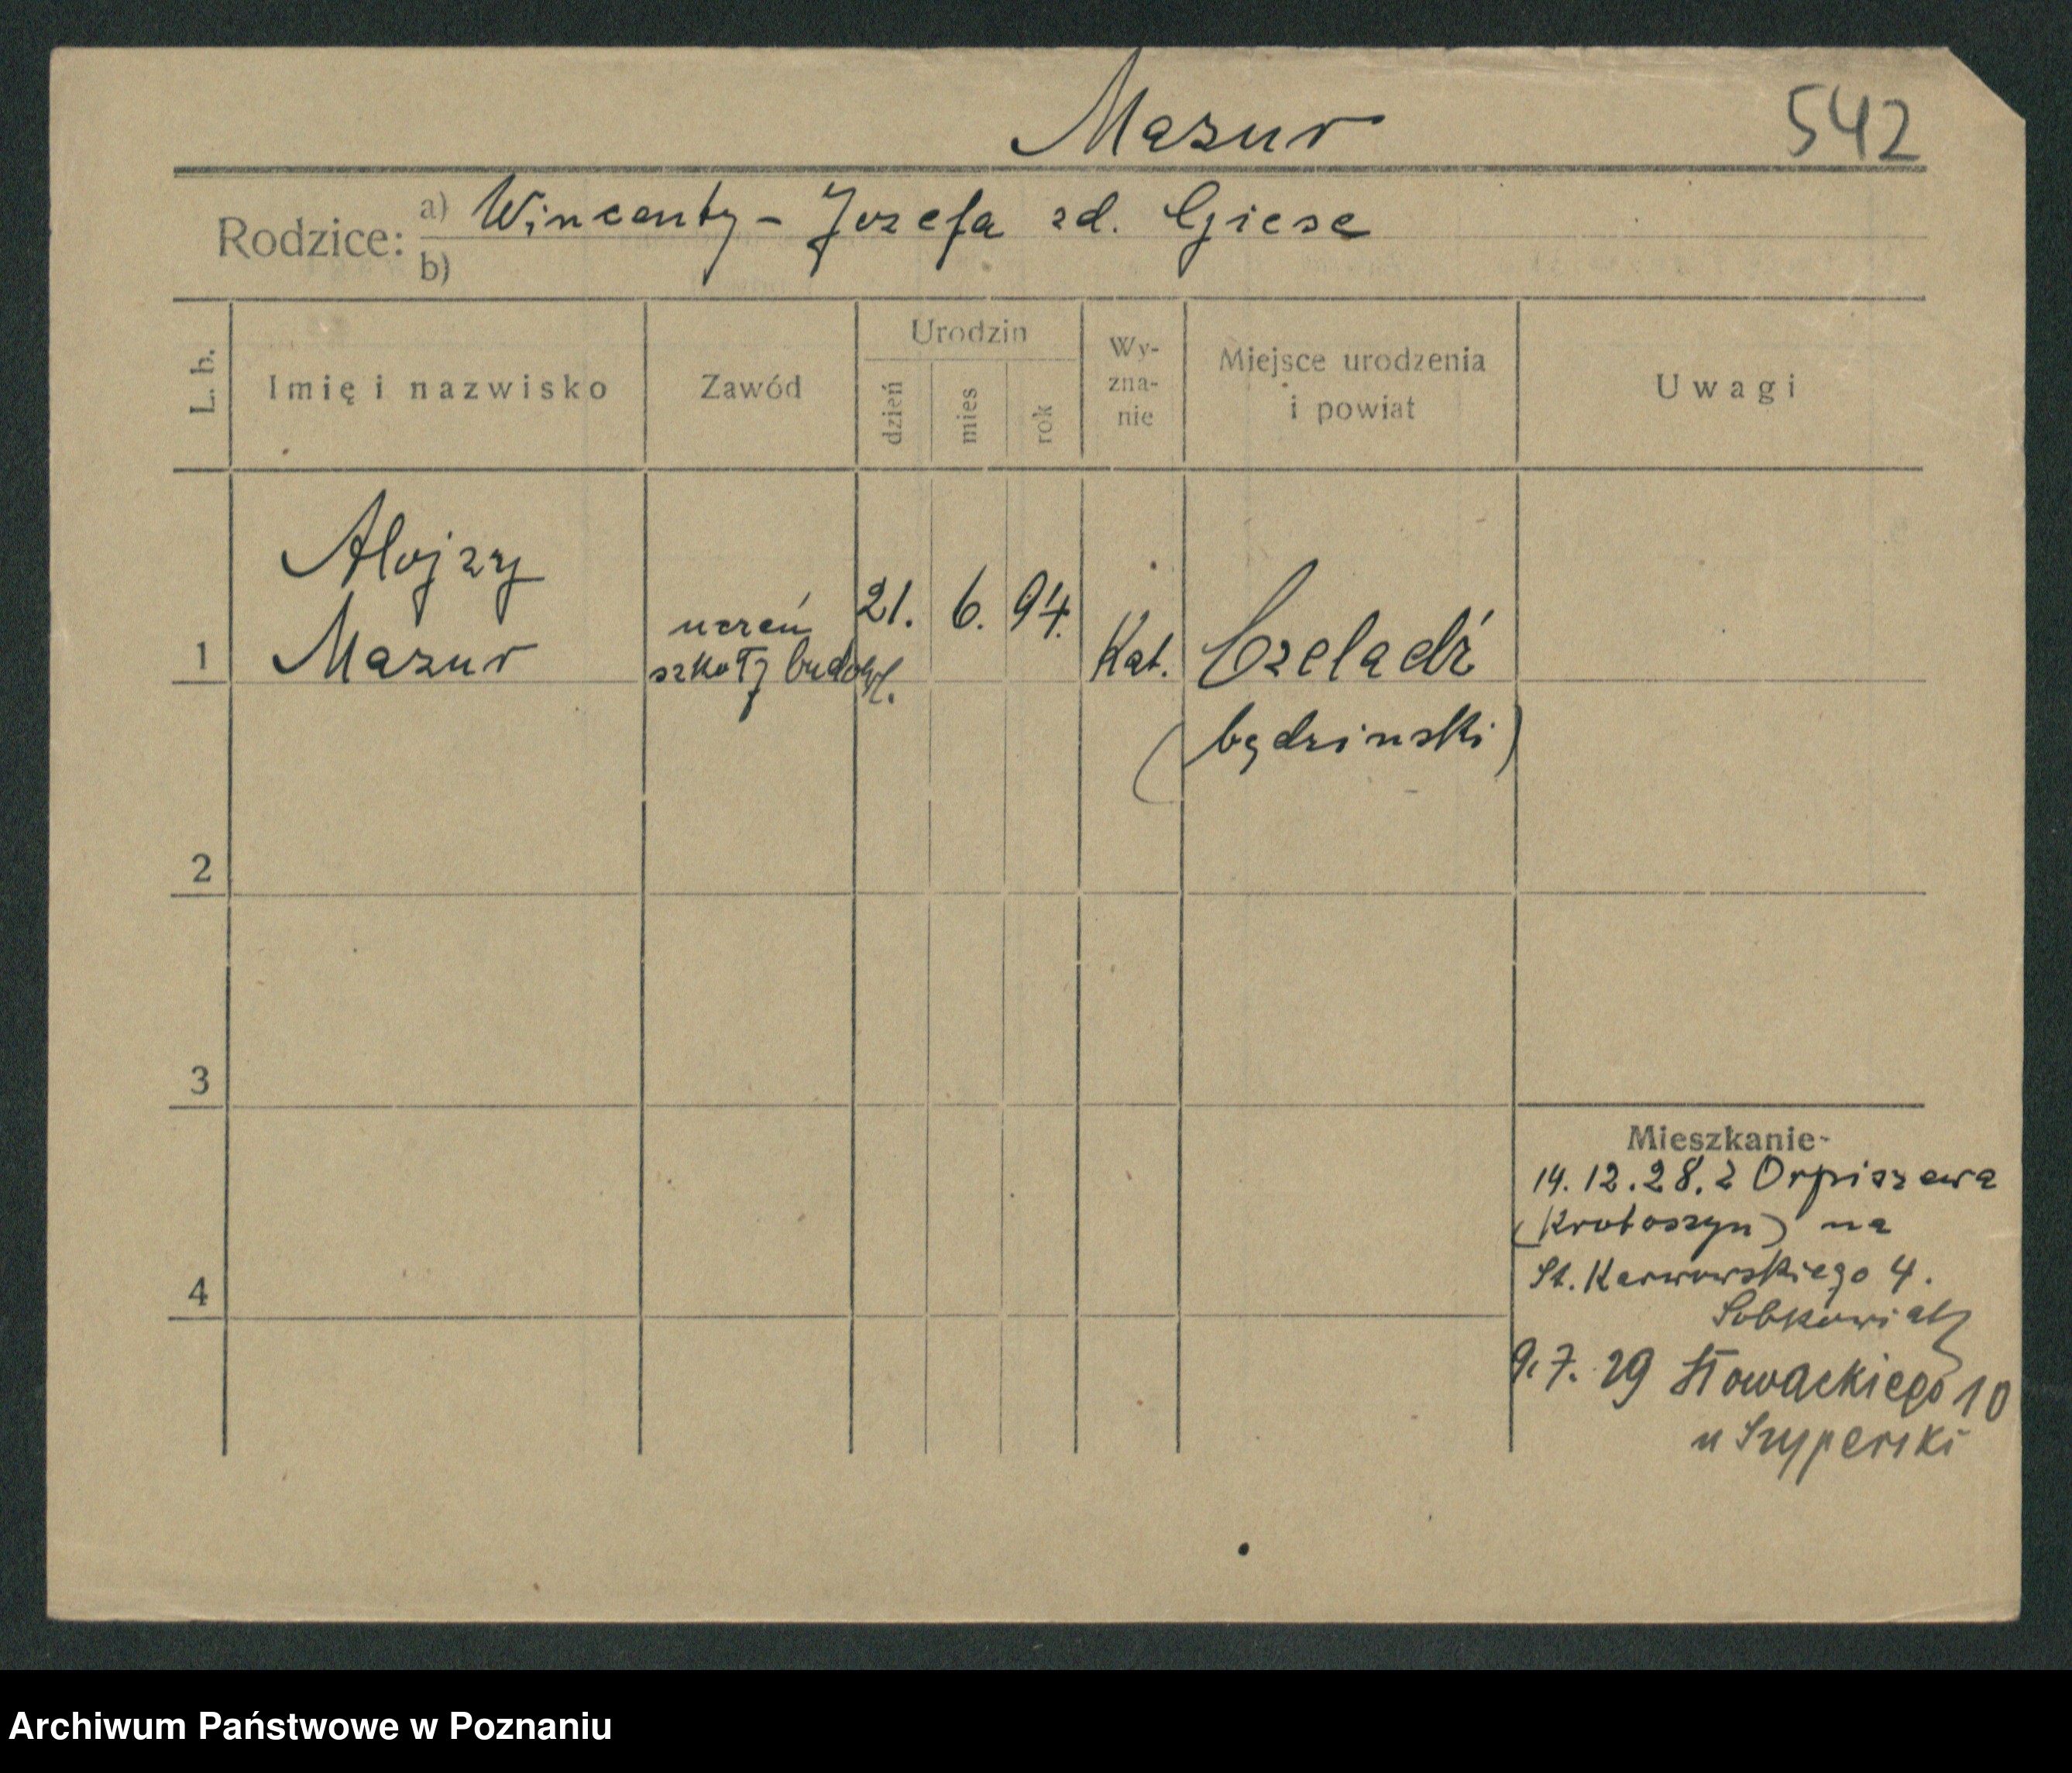 Mazur
542
Rodzice:
a) Wincenty - Jozefa zd. Giese
b)
L. b.
Imię i nazwisko
Zawód
Urodzin
dzień
mies
rok
Wy-
zna-
nie
Miejsce urodzenia
i powiat
Uwagi
Alojzy
Mazur
1
uczeń
szkoły budowl.
21. 6. 94.
Kat.
Czeladź
(będzinski)
2
3
4
Mieszkanie-
14.12.28. z Orpiszewa
(Krotoszyn) na
St. Karwowskiego 4.
Sobkowiak
9.7.29 Słowackiego 10
u Szyperski
Archiwum Państwowe w Poznaniu